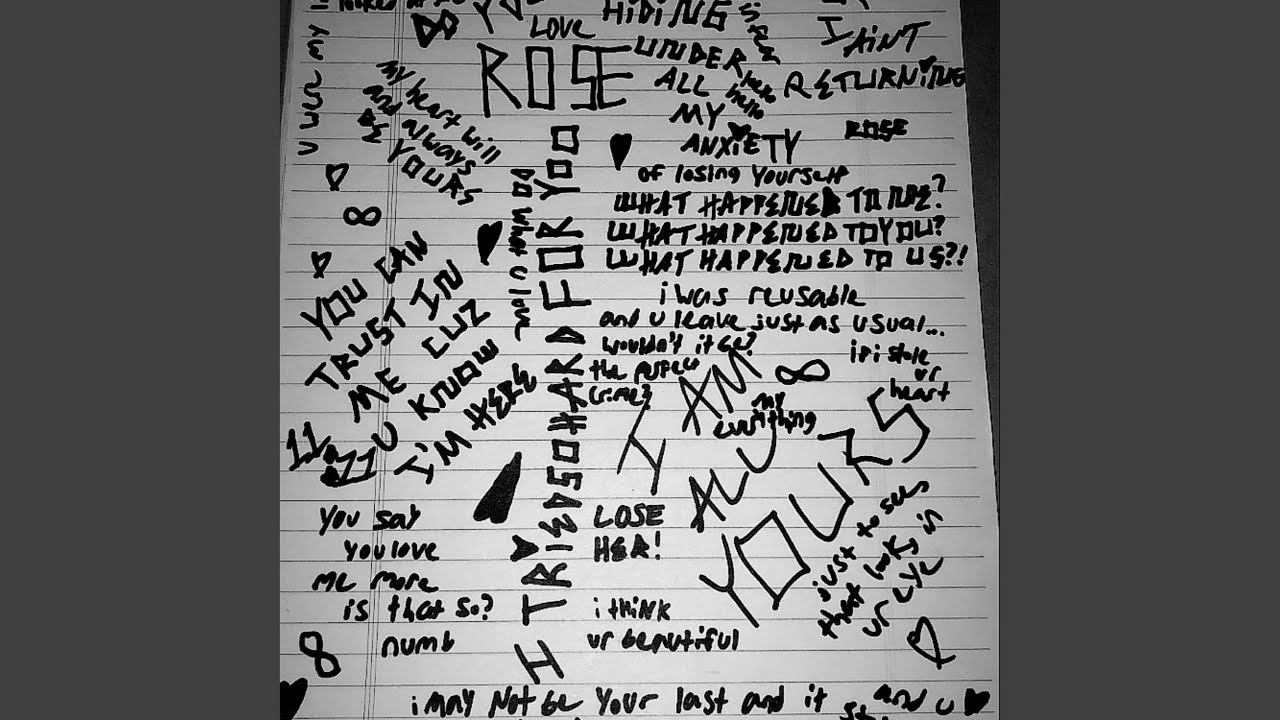 LOVE
ROSE
HIDING
UNDER
ALL
MY
ANXIETY
of losing yourself
I AINT
RETURNING
ROSE
my heart will
and always
BE
YOURS
hello
hello
WHAT HAPPENED TO ME?
WHAT HAPPENED TO YOU?
WHAT HAPPENED TO US?!
i was reusable
and u leave just as usual...
wouldn't it be?
the perfect
crime?
if i stole
ur
heart
YOU CAN
TRUST IN
ME CUZ
U KNOW
I'M HERE
11:11
DO what u love
I TRIED SO HARD FOR YOU
I AM
ALL
YOURS
my
everything
LOSE
HER!
You say
you love
me more
is that so?
numb
i think
ur beautiful
just to see
that look in
ur eye
i may not be your last and it
and u